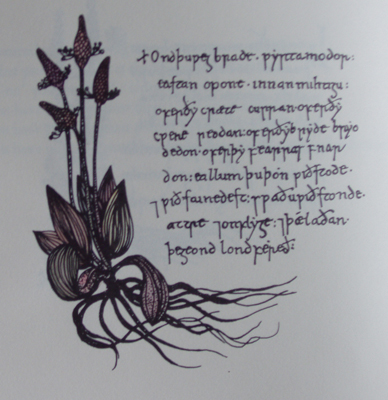 +Ondþuƿegbrade·ƿyrtamodor:
eastan opone·innan mihtigu:
oferðy cræte curran·oferðy
cƿene reodan·oferðybryde bryo
dedon·oferþy fearras fnær
don:eallum þuþon ƿiðstode·
⁊ƿiðstunedest:sƿaðuƿiðstonde
attre ⁊onflyge:⁊þælaðan·
þegeond londfereð: